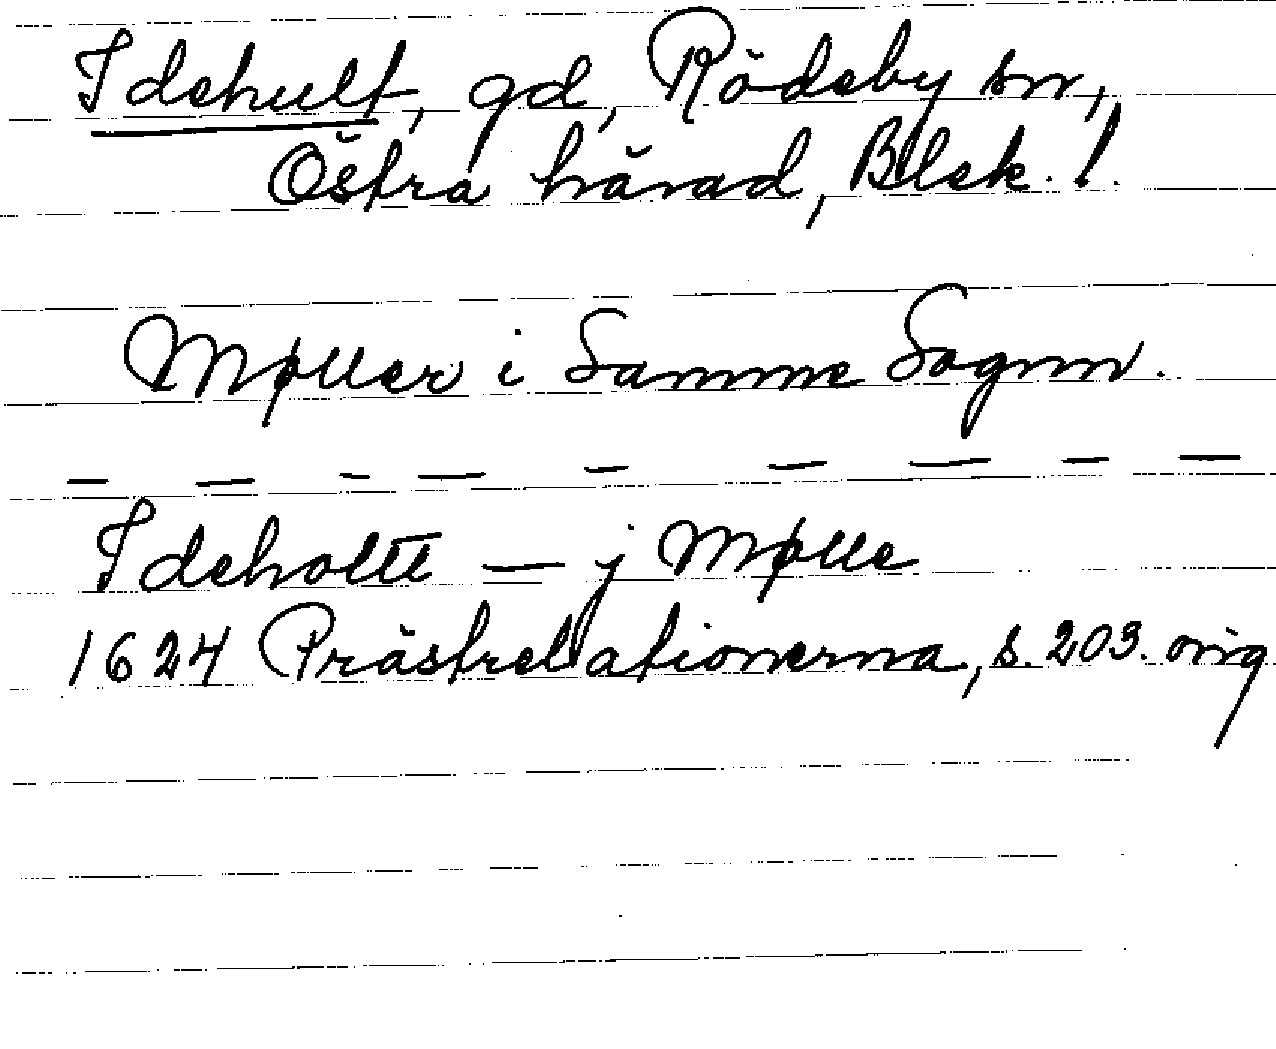 Idehult, gd, Rödeby sn,
Östra härad, Blek. l.
Møller i Samme Sognn.
— — - — - — — - —
Ideholtt — j Mølle
1624 Prästrelationerna, s. 203. orig